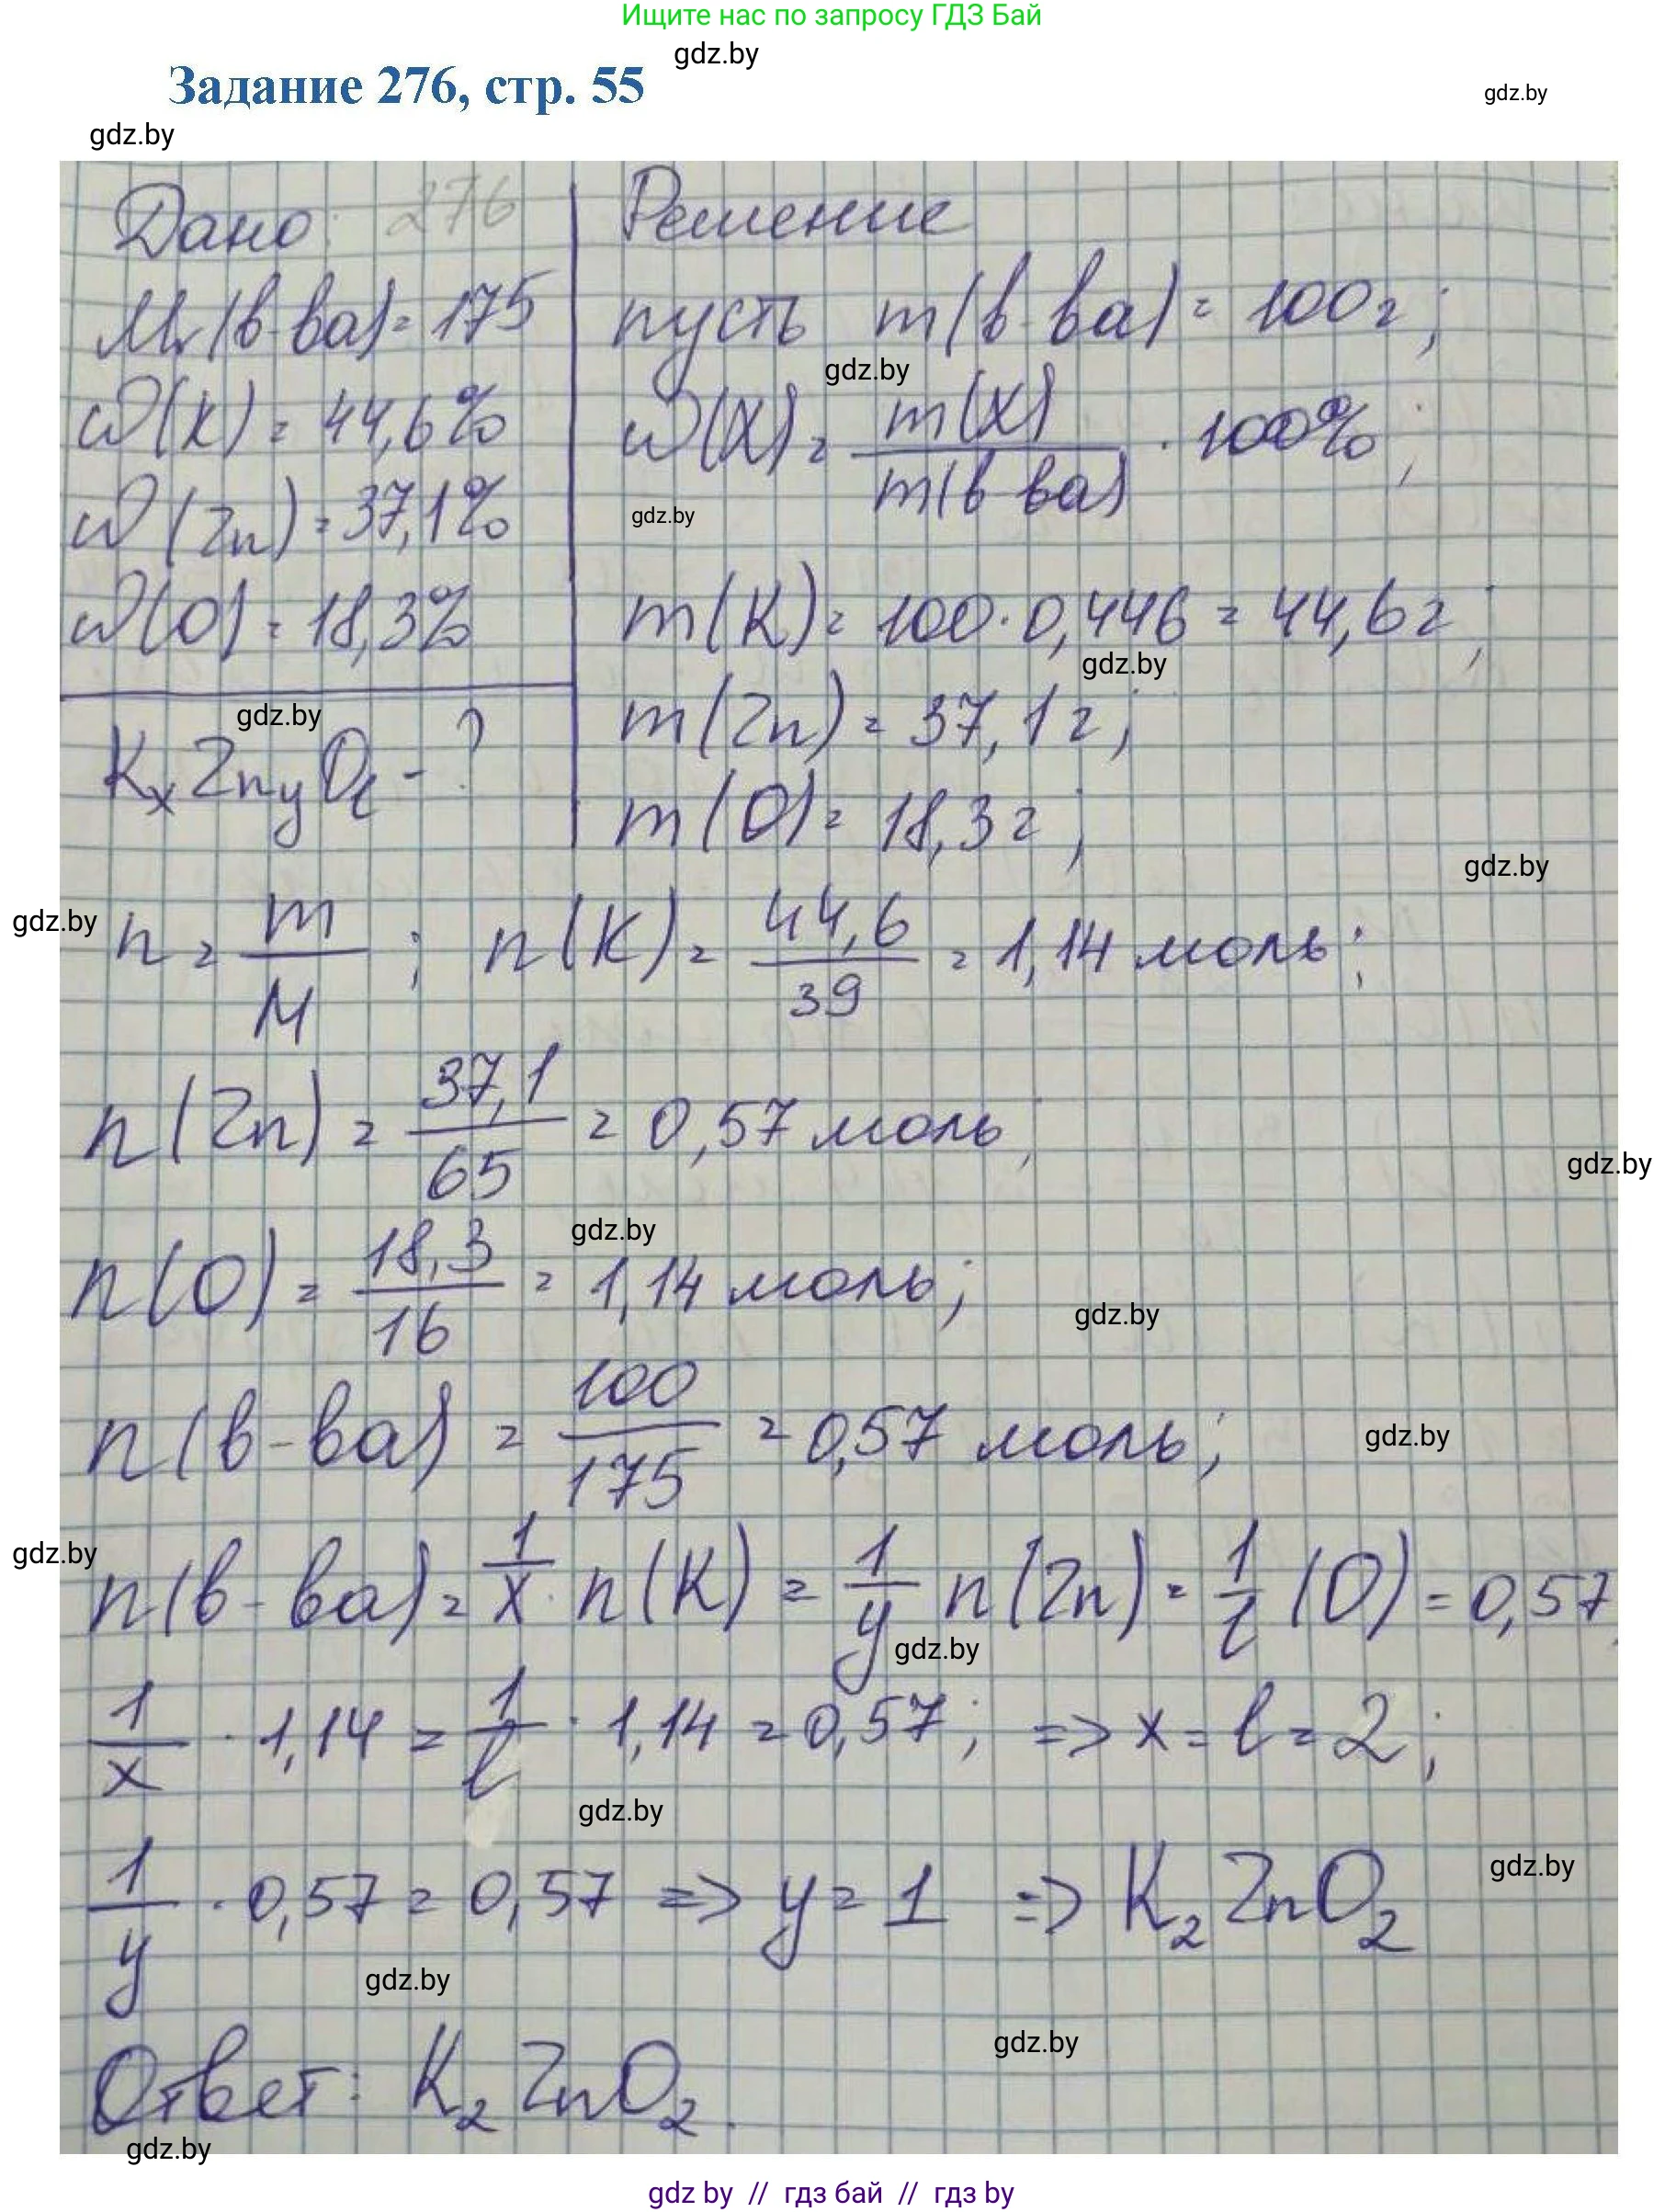 Ищите нас по запросу ГДЗ Бай
gdz.by
Задание 276, стр. 55
gdz.by
gdz.by
Дано: 276
Mr(в-ва) = 175
ω(K) = 44,6%
ω(Zn) = 37,1%
ω(O) = 18,3%
gdz.by
KxZnyOl - ?
Решение
пусть m(в-ва) = 100г;
gdz.by
ω(X) = m(X) / m(в-ва) · 100%;
gdz.by
m(K) = 100 · 0,446 = 44,6г;
gdz.by
m(Zn) = 37,1г;
m(O) = 18,3г;
gdz.by
gdz.by
n = m / M ; n(K) = 44,6 / 39 = 1,14 моль;
n(Zn) = 37,1 / 65 = 0,57 моль;
gdz.by
gdz.by
n(O) = 18,3 / 16 = 1,14 моль;
gdz.by
n(в-ва) = 100 / 175 = 0,57 моль;
gdz.by
gdz.by
n(в-ва) = 1/x · n(K) = 1/y n(Zn) = 1/l (O) = 0,57;
gdz.by
1/x · 1,14 = 1/l · 1,14 = 0,57; => x = l = 2;
gdz.by
1/y · 0,57 = 0,57 => y = 1 => K2ZnO2
gdz.by
gdz.by
gdz.by
Ответ: K2ZnO2.
gdz.by
gdz by // гдз бай // гдз by